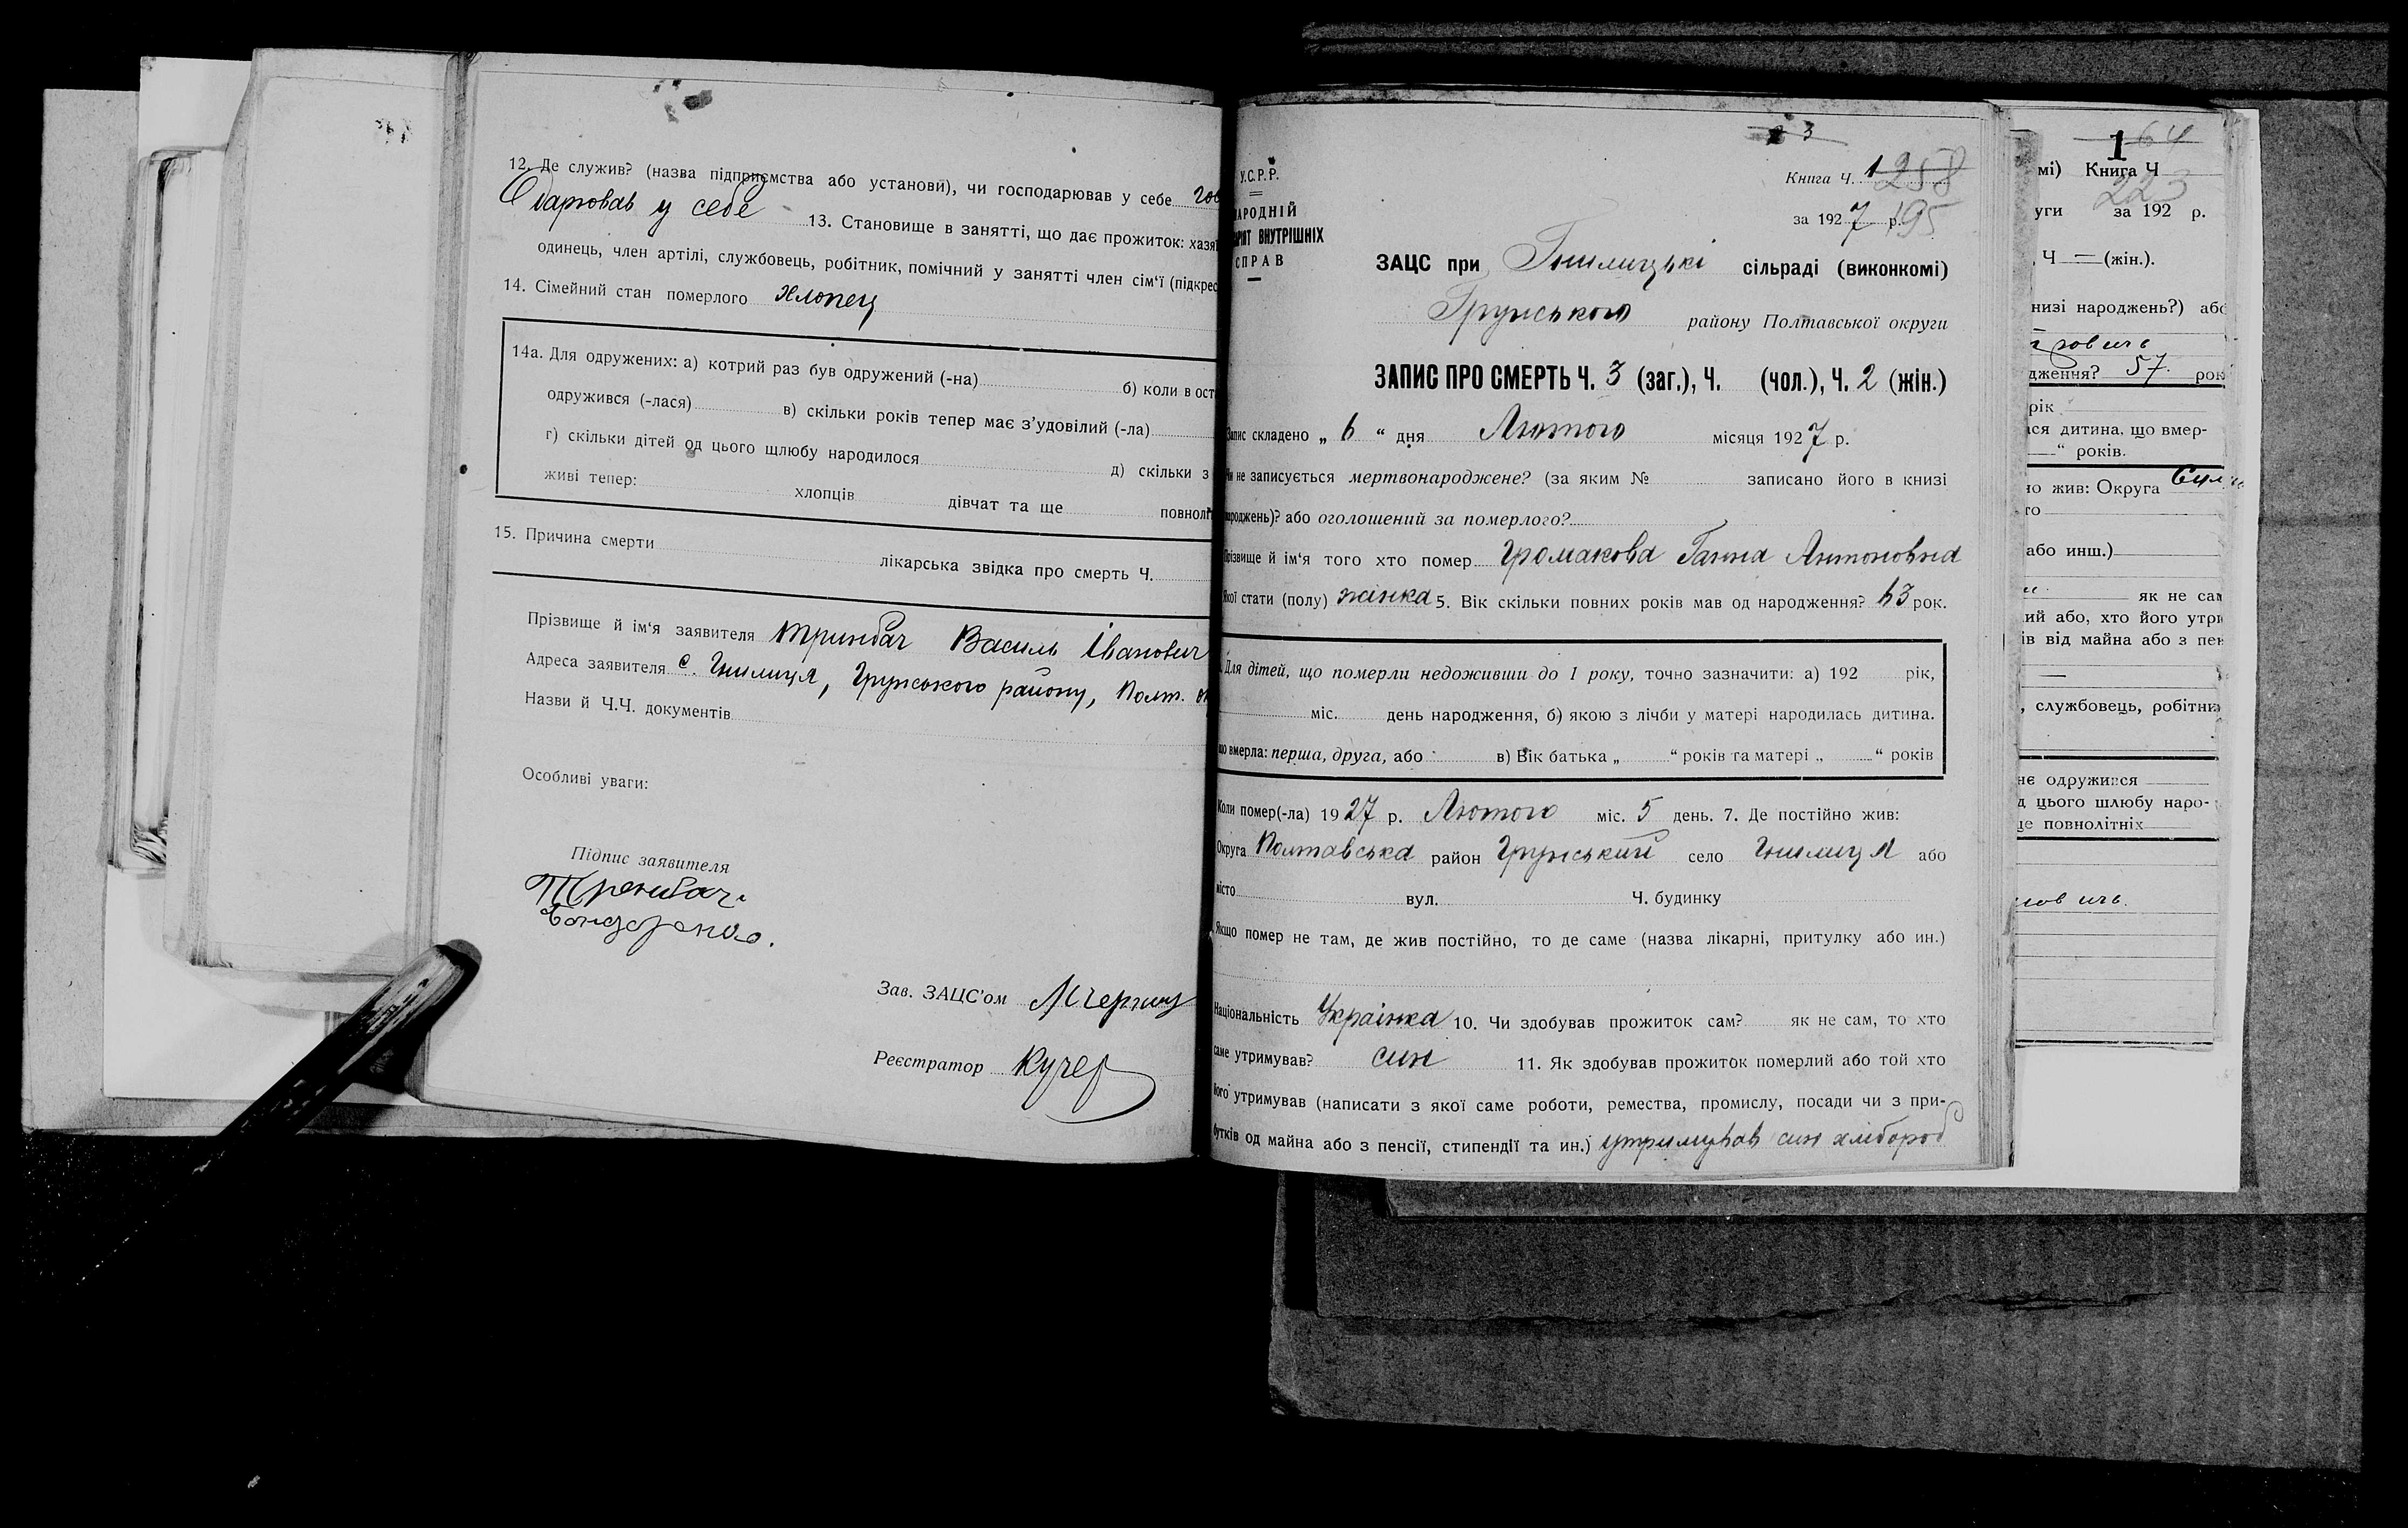 12. Де служив? (назва підприємства або установи), чи господарював у себе гос
одарював у себе 13. Становище в занятті, що дає прожиток: хазя
одинець, член артілі, службовець, робітник, помічний у занятті член сім'ї (підкрес
14. Сімейний стан померлого хлопец
14а. Для одружених: а) котрий раз був одружений (-на) б) коли в ост
одружився (-лася) в) скільки років тепер має з'удовілий (-ла)
г) скільки дітей од цього щлюбу народилося д) скільки з
живі тепер: хлопців дівчат та ще повноліт
15. Причина смерти лікарська звідка про смерть Ч.
Прізвище й ім'я заявителя Тринбач Василь Іванович
Адреса заявителя с. Гнилиця, Грунського району, Полт. ок
Назви й Ч.Ч. документів
Особливі уваги:
Підпис заявителя
Зав. ЗАЦС'ом
Реєстратор Кучер
3
У.С.Р.Р.
АРОДНІЙ
АРІЯТ ВНУТРІШНІХ
СПРАВ
Книга Ч. 1 258
за 1927 р. 195
ЗАЦС при Гнилицькі сільраді (виконкомі)
Грунського району Полтавської округи
ЗАПИС ПРО СМЕРТЬ Ч. 3 (заг.), Ч. (чол.), Ч. 2 (жін.)
Запис складено „ 6 “ дня Лютого місяця 1927 р.
Чи не записується мертвонароджене? (за яким № записано його в книзі
народжень)? або оголошений за померлого?
Прізвище й ім'я того хто помер Громакова Ганна Антоновна
Якої стати (полу) жінка 5. Вік скільки повних років мав од народження? 63 рок.
Для дітей, що померли недоживши до 1 року, точно зазначити: а) 192 рік,
міс. день народження, б) якою з лічби у матері народилась дитина.
що вмерла: перша, друга, або в) Вік батька „ “ років та матері „ “ років
Коли помер(-ла) 1927 р. Лютого міс. 5 день. 7. Де постійно жив:
Округа Полтавська район Грунський село Гнилиця або
місто вул. Ч. будинку
Якщо помер не там, де жив постійно, то де саме (назва лікарні, притулку або ин.)
Національність Українка 10. Чи здобував прожиток сам? як не сам, то хто
саме утримував? син 11. Як здобував прожиток померлий або той хто
його утримував (написати з якої саме роботи, ремества, промислу, посади чи з при-
бутків од майна або з пенсії, стипендії та ин.) утримував син хлібороб
1 64
мі) Книга Ч
223
уги за 192 р.
, Ч — (жін.).
низі народжень?) або
дження? 57 рок
рік
ся дитина, що вмер-
“ років.
но жив: Округа
то
або инш.)
як не сам
ий або, хто його утри
ів від майна або з пен
, службовець, робітник
нє одружився
д цього шлюбу наро-
ще повнолітніх